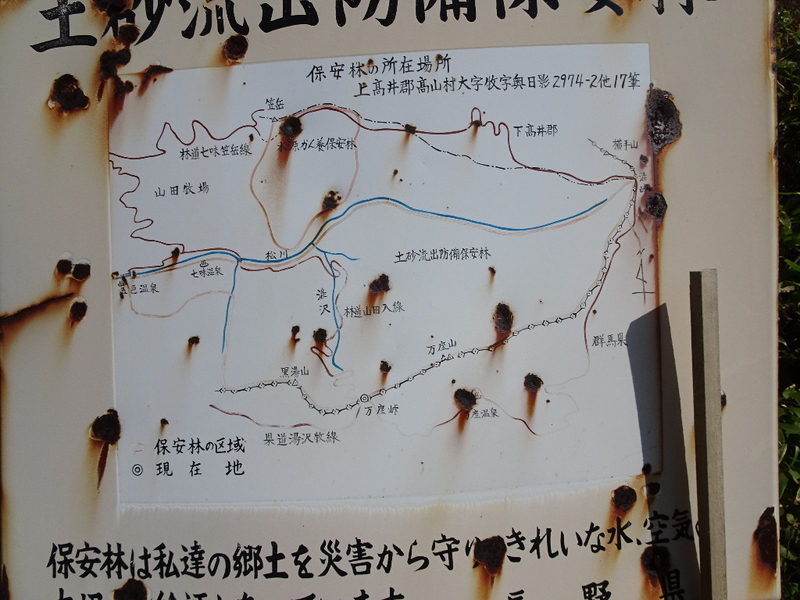 土砂流出防備保安林
保安林の所在場所
上高井郡高山村大字牧字奥日影2974-2他17筆
笠岳
下高井郡
横手山
林道七味笠岳線
かん養保安林
山田牧場
松川
土砂流出防備保安林
七味温泉
色温泉
浜沢
林道山田入線
万座山
群馬県
黒湯山
万座峠
万座温泉
県道湯沢牧線
保安林の区域
◎ 現在地
保安林は私達の郷土を災害から守り、きれいな水、空気
野 県